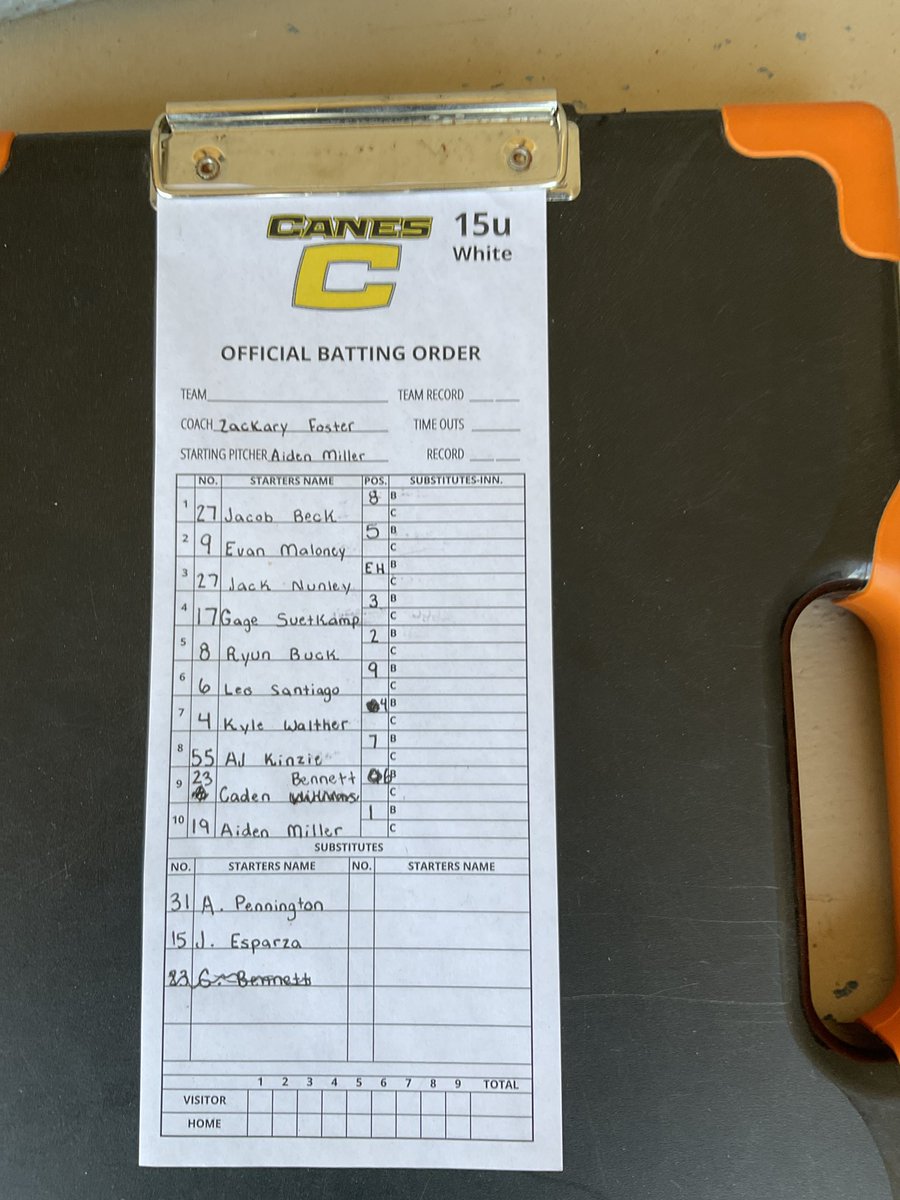 CANES
C
15u
White
OFFICIAL BATTING ORDER
TEAM TEAM RECORD
COACH Zackary Foster TIME OUTS
STARTING PITCHER Aiden Miller RECORD
NO. STARTERS NAME POS. SUBSTITUTES-INN.
1 27 Jacob Beck 8 B C
2 9 Evan Maloney 5 B C
3 27 Jack Nunley EH B C
4 17 Gage Suetkamp 3 B C
5 8 Ryun Buck 2 B C
6 6 Leo Santiago 9 B C
7 4 Kyle Walther 4 B C
8 55 AJ Kinzie 7 B C
9 23 Caden Bennett 6 B C
10 19 Aiden Miller 1 B C
SUBSTITUTES
NO. STARTERS NAME NO. STARTERS NAME
31 A. Pennington
15 J. Esparza
23 C. Bennett
1 2 3 4 5 6 7 8 9 TOTAL
VISITOR
HOME